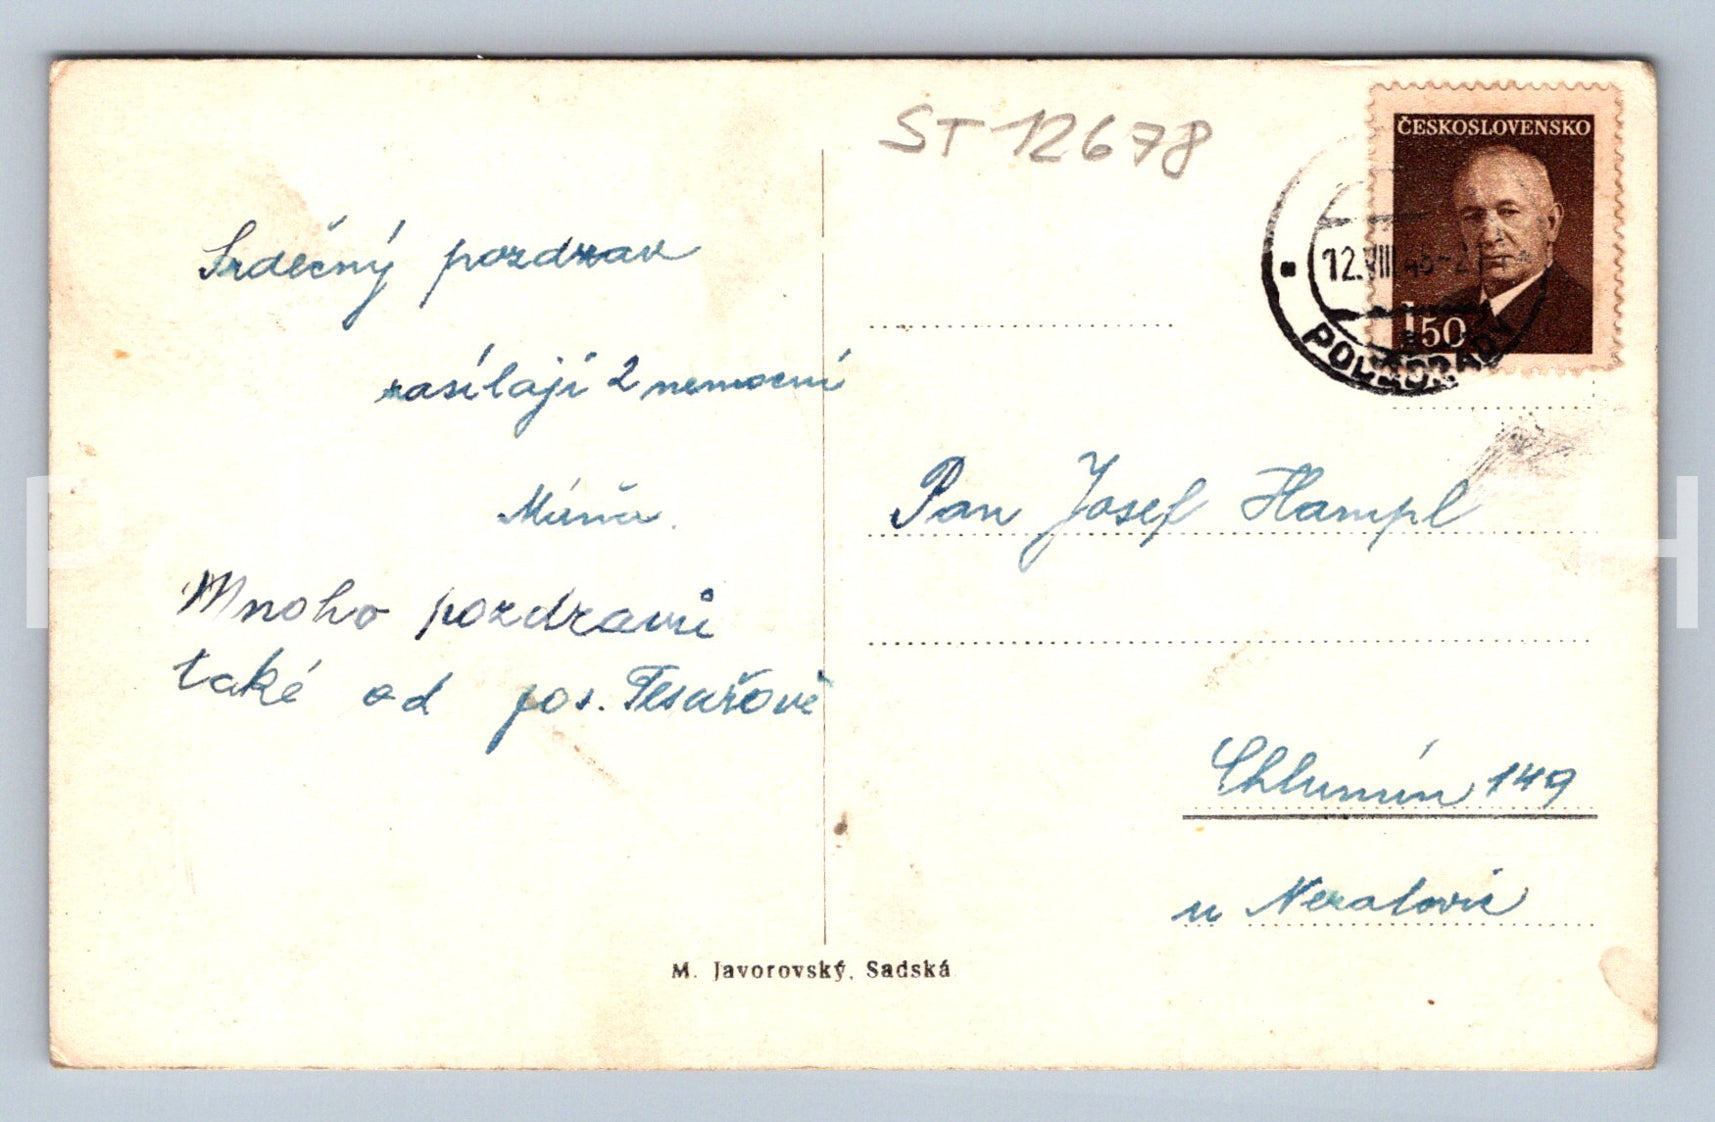 ST 12678
ČESKOSLOVENSKO
12.VIII.48-21
1'50
PODĚBRADY
Srdečný pozdrav
zasílají 2 nemocní
Máňa.
Mnoho pozdravů
také od pos. Tesařové
Pan Josef Hampl
Chlumín 149
u Neratovic
M. Javorovský, Sadská